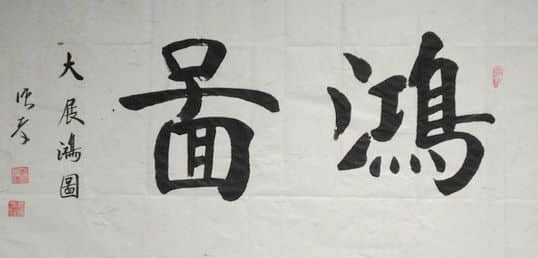 鴻圖
大展鴻圖